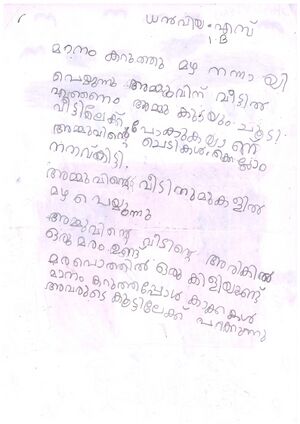 ധൻവിയ എസ്
1 B
മാനം കറുത്തു മഴ നന്നായി
പെയ്യുന്നു അമ്മുവിന് വീട്ടിൽ
എത്തണം അമ്മു കുടയും ചൂടി
വീട്ടിലേക്ക് പോകുകയാണ്
അമ്മുവിന്റെ ചെടികൾക്കെല്ലാം
നനവ്കിട്ടി.
അമ്മുവിന്റെ വീടിനുമുകളിൽ
മഴ പെയ്യുന്നു
അമ്മുവിന്റെ വീടിന്റെ അരികിൽ
ഒരു മരം ഉണ്ട്
മരപൊത്തിൽ ഒരു കിളിയുണ്ട്
മാനം കറുത്തപ്പോൾ കാക്കകൾ
അവരുടെ കൂട്ടിലേക്ക് പറക്കുന്നു